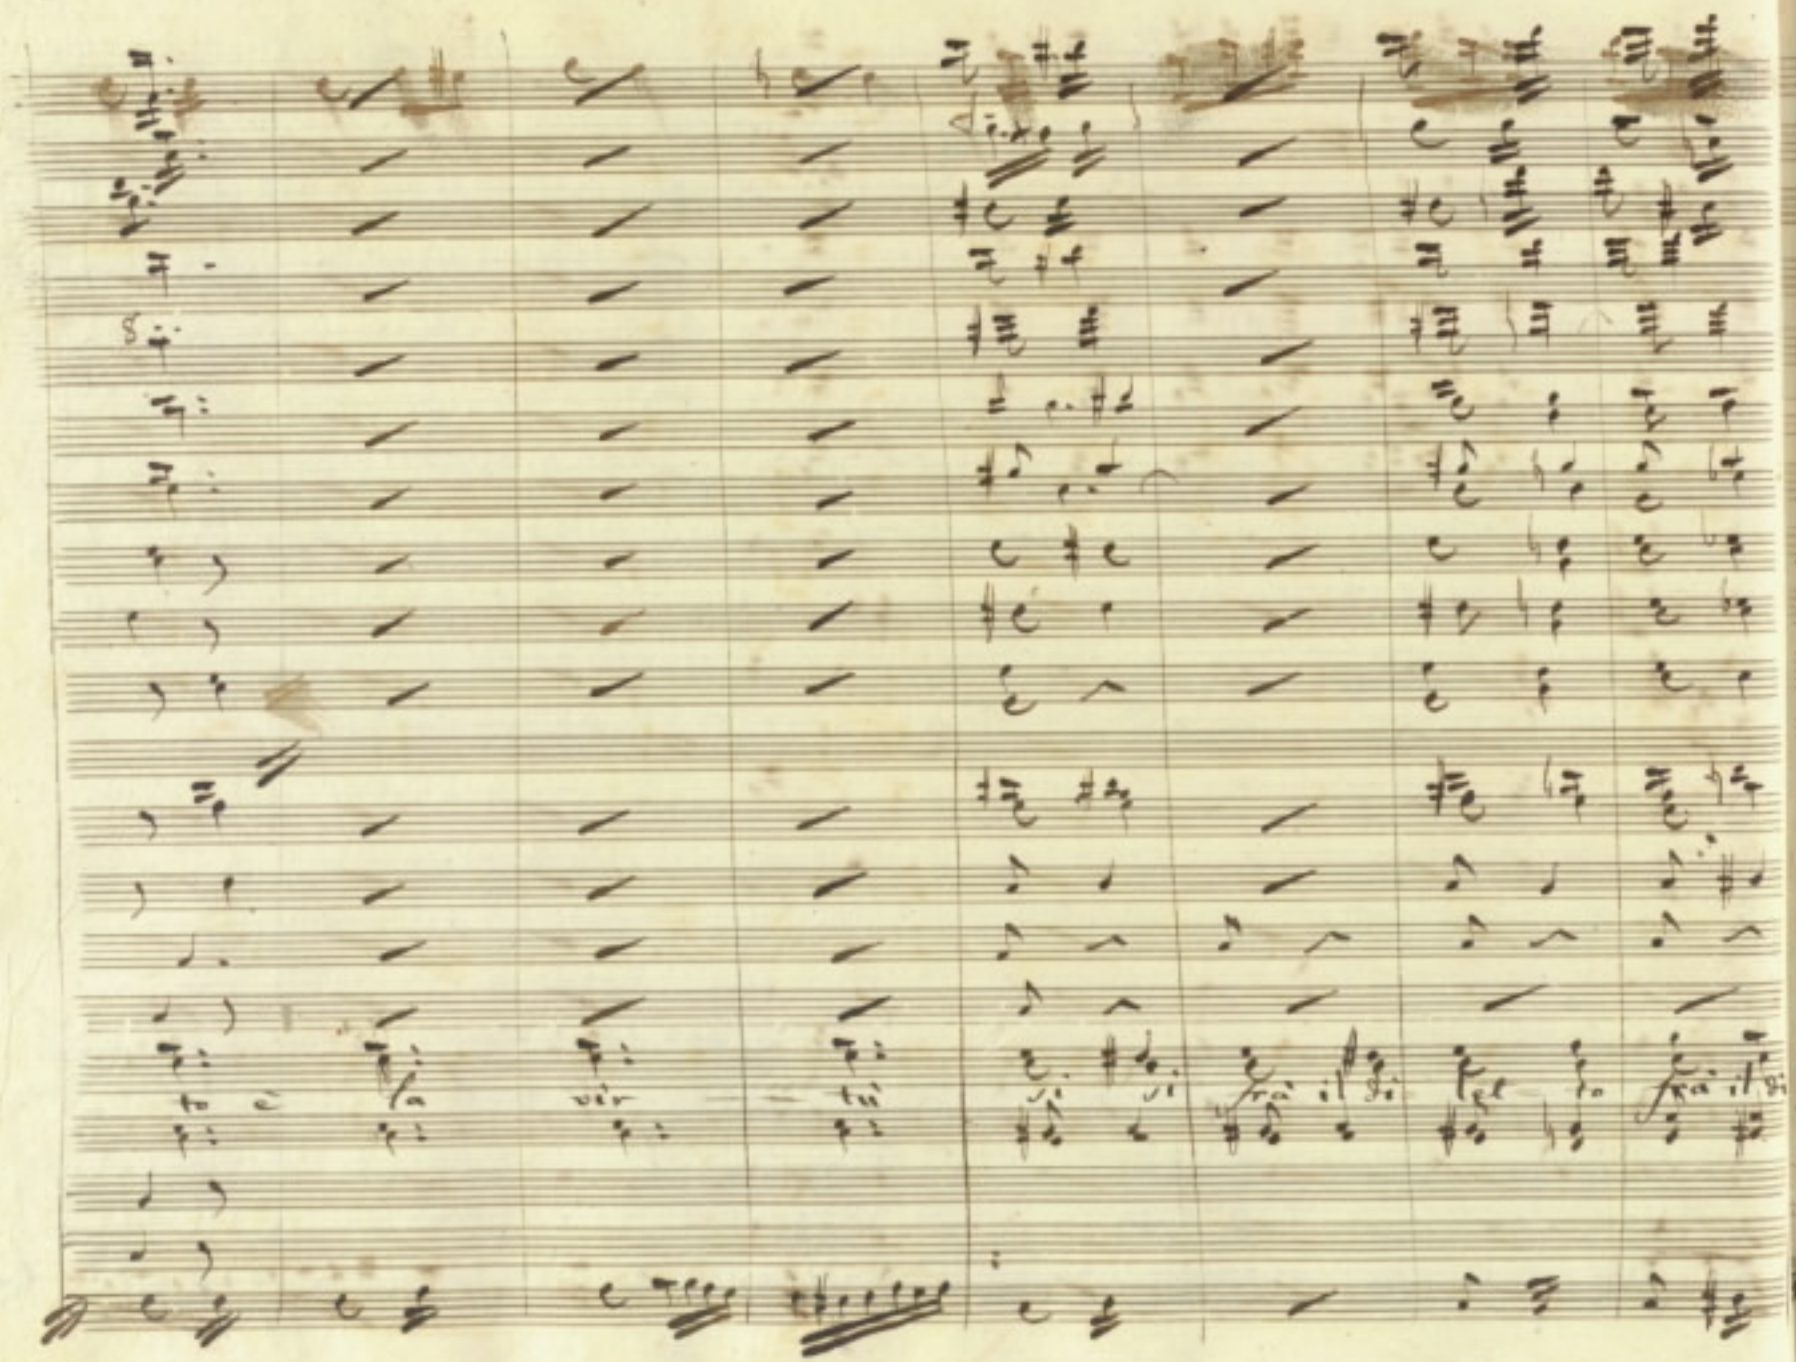 8
to è la vir - - tù vi vi rà il di let to rà il di